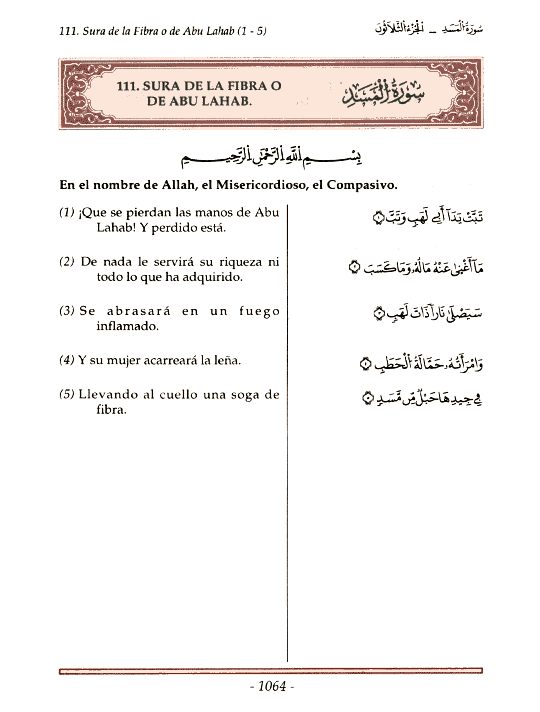 111. Sura de la Fibra o de Abu Lahab (1 - 5)
سُورَةُ المَسَد - الجُزءُ الثَّلَاثُونَ
111. SURA DE LA FIBRA O
DE ABU LAHAB.
سُورَةُ المَسَد
بِسْمِ اللَّهِ الرَّحْمَٰنِ الرَّحِيمِ
En el nombre de Allah, el Misericordioso, el Compasivo.
(1) ¡Que se pierdan las manos de Abu
Lahab! Y perdido está.
تَبَّتْ يَدَآ أَبِى لَهَبٍ وَتَبَّ ١
(2) De nada le servirá su riqueza ni
todo lo que ha adquirido.
مَآ أَغْنَىٰ عَنْهُ مَالُهُۥ وَمَا كَسَبَ ٢
(3) Se abrasará en un fuego
inflamado.
سَيَصْلَىٰ نَارًا ذَاتَ لَهَبٍ ٣
(4) Y su mujer acarreará la leña.
وَٱمْرَأَتُهُۥ حَمَّالَةَ ٱلْحَطَبِ ٤
(5) Llevando al cuello una soga de
fibra.
فِى جِيدِهَا حَبْلٌ مِّن مَّسَدٍ ٥
- 1064 -